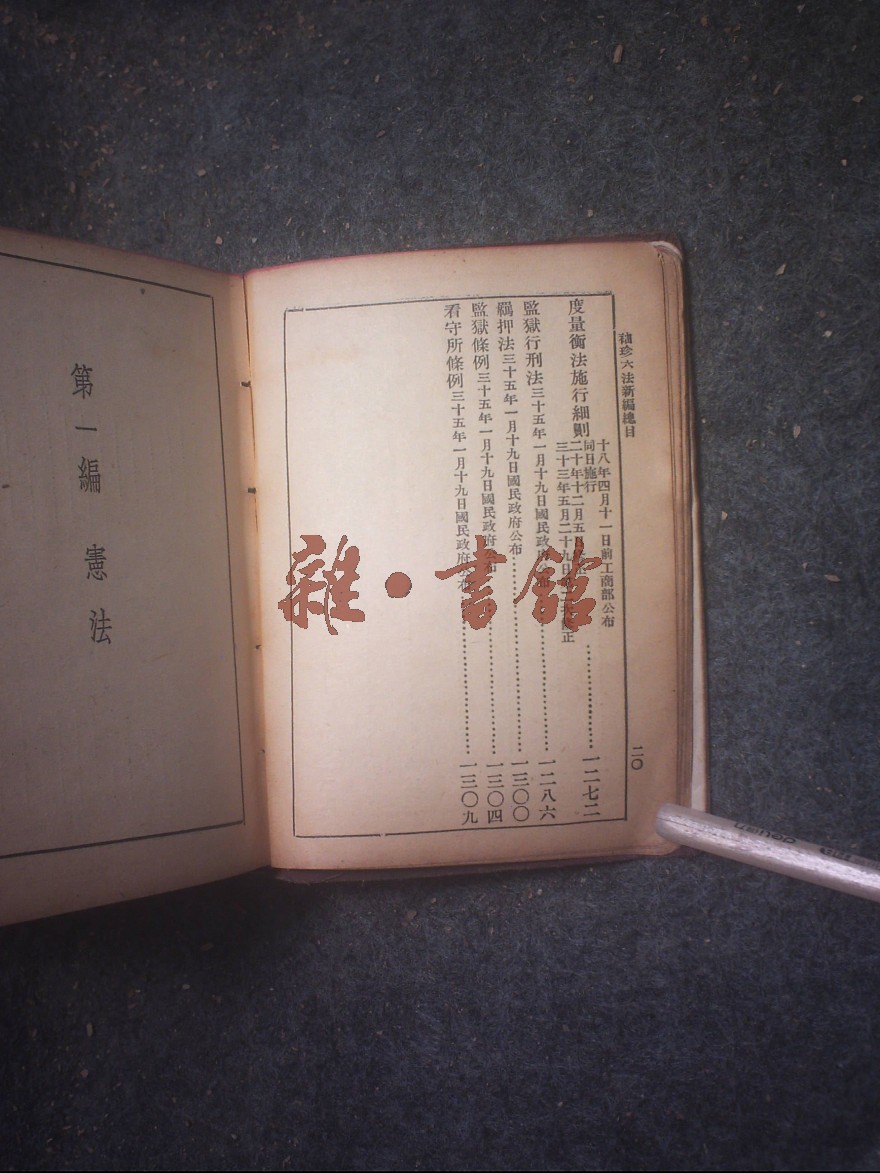 袖珍六法新編總目
二〇
度量衡法施行細則
十八年四月十一日前工商部公布
同日施行
二十年十二月五日
三十三年五月二十九日第二次修正
一二七二
監獄行刑法三十五年一月十九日國民政府公布
一二八六
羈押法三十五年一月十九日國民政府公布
一三〇〇
監獄條例三十五年一月十九日國民政府公布
一三〇四
看守所條例三十五年一月十九日國民政府公布
一三〇九
第一編 憲法
雜·書館